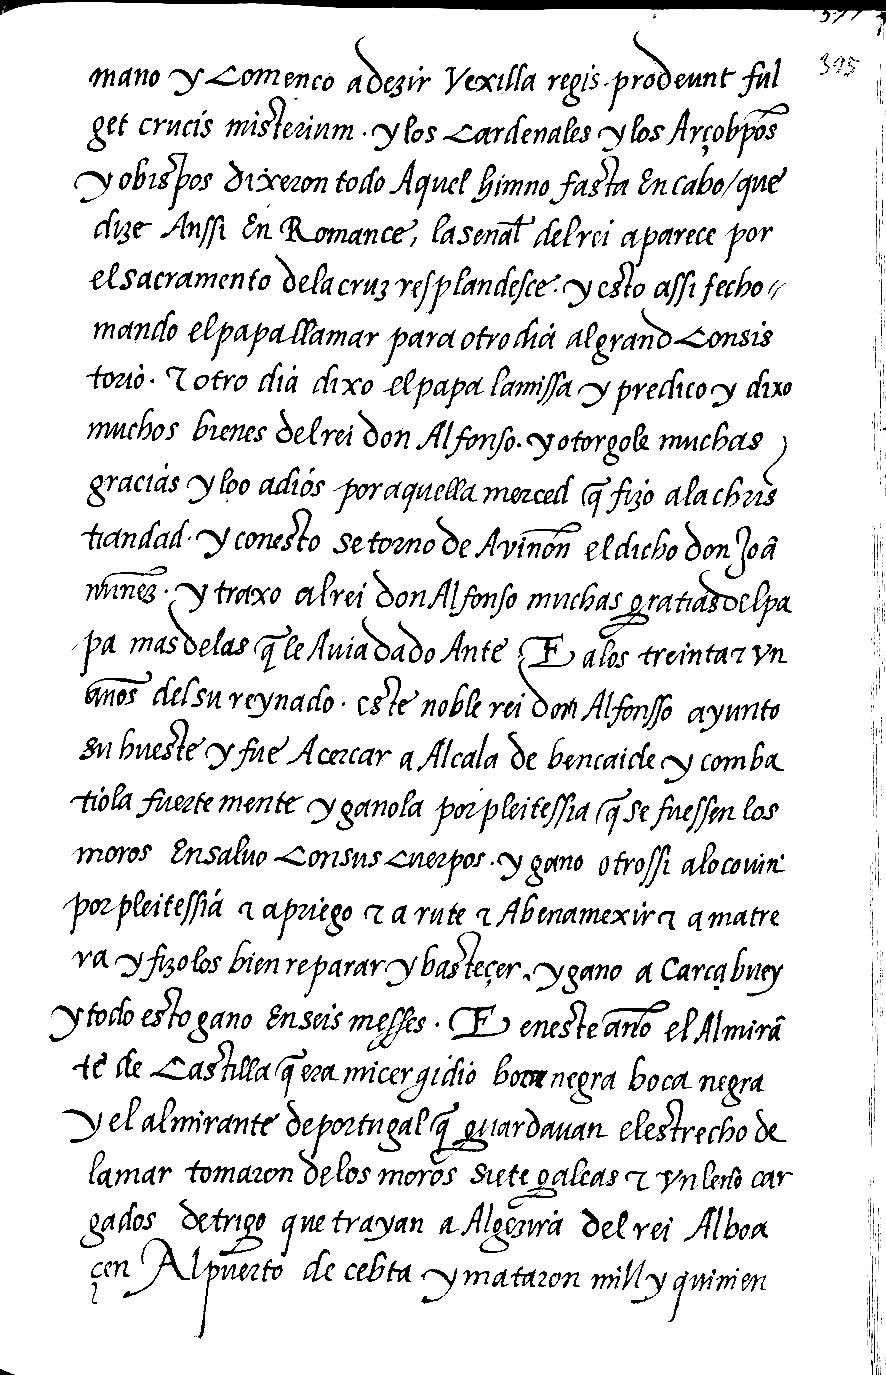 395
mano y Comenco adezir Vexilla regis prodeunt ful
get crucis misterium · y los Cardenales y los Arçobp̃os
y obispos dixeron todo Aquel himno fasta En cabo / que
dize Anssi En Romance, la señal del rei aparece por
el sacramento de la cruz resplandesce · y esto assi fecho
mando el papa llamar para otro dia al grand Consis
torio · τ otro dia dixo el papa la missa y predico y dixo
muchos bienes del rei don Alfonso · y otorgole muchas
gracias y loo adios por aquella merced q̃ fizo a la chris
tiandad · y con esto se torno de Aviñon el dicho don Joã
nuñez · y traxo al rei don Alfonso muchas gratias del pa
pa mas de las q̃ le Auia dado Ante E a los treinta τ vn
años del su reynado · este noble rei don Alfonsso ayunto
su hueste y fue A cercar a Alcala de bencaide y comba
tiola fuerte mente y ganola por pleitessia q̃ se fuessen los
moros En saluo Con sus cuerpos · y gano otrossi a locouin
por pleitessia τ a priego τ a rute τ Abenamexir τ a matre
ra y fizolos bien reparar y basteçer, y gano a Carcabuey
y todo esto gano En seis messes · E en este año el Almirã
te de Castilla q̃ era micer gidio boca negra boca negra
y el almirante de portugal q̃ guardauan el estrecho de
la mar tomaron de los moros siete galeas τ vn leño car
gados de trigo que trayan a Algezira del rei Alboa
çen Al puerto de cebta y mataron mill y quinien